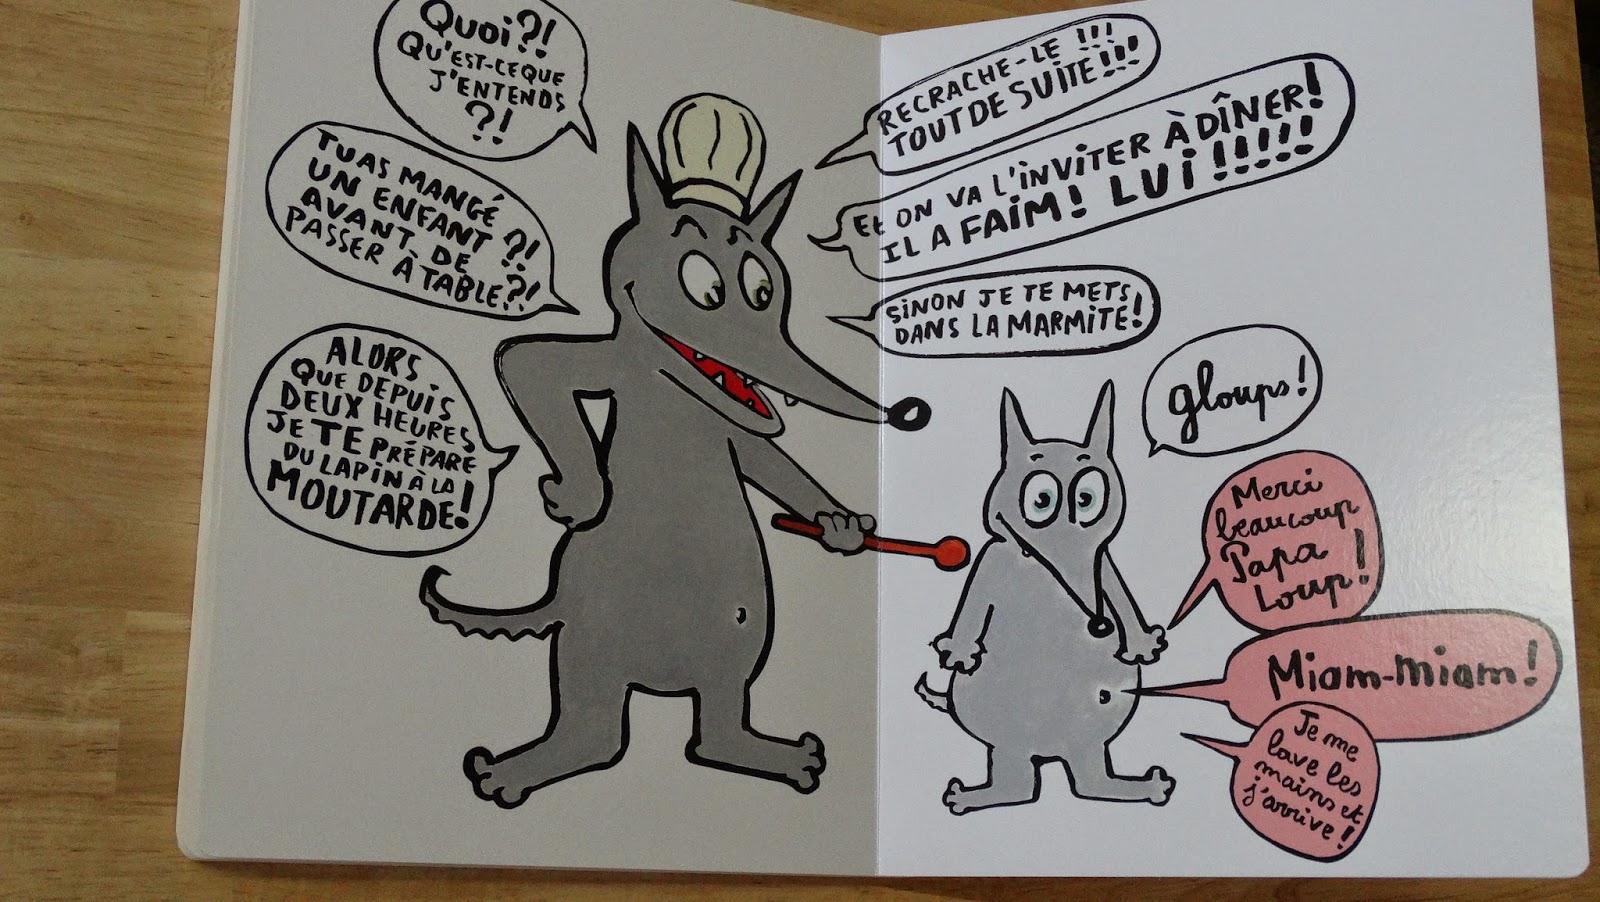 Quoi?!
QU'EST-CE QUE
J'ENTENDS
?!
TU AS MANGÉ
UN ENFANT ?!
AVANT DE
PASSER À TABLE?!
ALORS
QUE DEPUIS
DEUX HEURES
JE TE PRÉPARE
DU LAPIN À LA
MOUTARDE!
RECRACHE-LE !!!
TOUT DE SUITE!!!
Et ON VA L'iNViTER À DÎNER!
IL A FAIM! LUi!!!!!
SiNON JE TE METS
DANS LA MARMITE!
gloups!
Merci
beaucoup
Papa
Loup!
Miam-miam!
Je me
lave les
mains et
j'arrive!